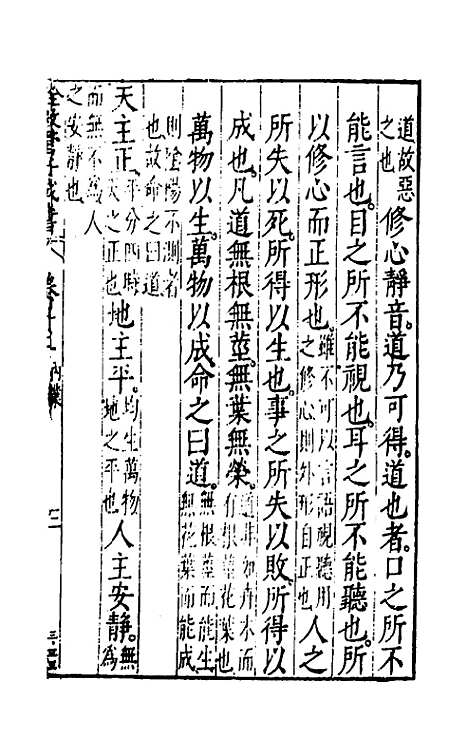 道故惡之也修心靜音道乃可得道也者口之所不
能言也目之所不能視也耳之所不能聽也所
以修心而正形也雖不可以言語視聽用之修心則外形自正也人之
所失以死所得以生也事之所失以敗所得以
成也凡道無根無莖無葉無榮道非如卉木而有根莖花葉也
萬物以生萬物以成命之曰道無根莖而能生無花葉而能成
則陰陽不測者也故命之曰道
天主正平分四時天之正也地主平均生萬物地之平也人主安靜無爲
而無不爲人之安靜也